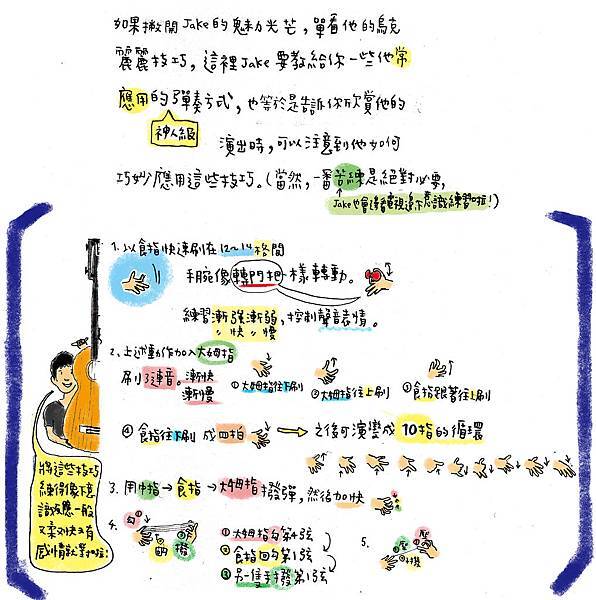 如果撇開Jake的魅力光芒，單看他的烏克
麗麗技巧，這裡Jake要教給你一些他常
應用的彈奏方式，也等於是告訴你欣賞他的
神人級
演出時，可以注意到他如何
巧妙應用這些技巧。(當然，一番苦練是絕對必要，
Jake也會邊看電視邊下意識練習啦！)
1. 以食指快速刷在12～14格間
手腕像轉門把一樣轉動。
練習漸強漸弱，控制聲音表情。
〃快〃慢
2. 上述動作加入大姆指
刷3連音。漸快
漸慢
①大姆指往下刷
②大姆指往上刷
③食指跟著往上刷
④食指往下刷 成四拍 → 之後可演變成 10指的循環
3. 用中指→食指→大姆指撥彈，然後加快
4.
勾
勾 撥
①大姆指勾第4弦
②食指回勾第1弦
③另一隻手撥第1弦
5.
壓
壓
撥
將這些技巧
練得像下意
識反應一般
又柔又快又有
感情就對啦！